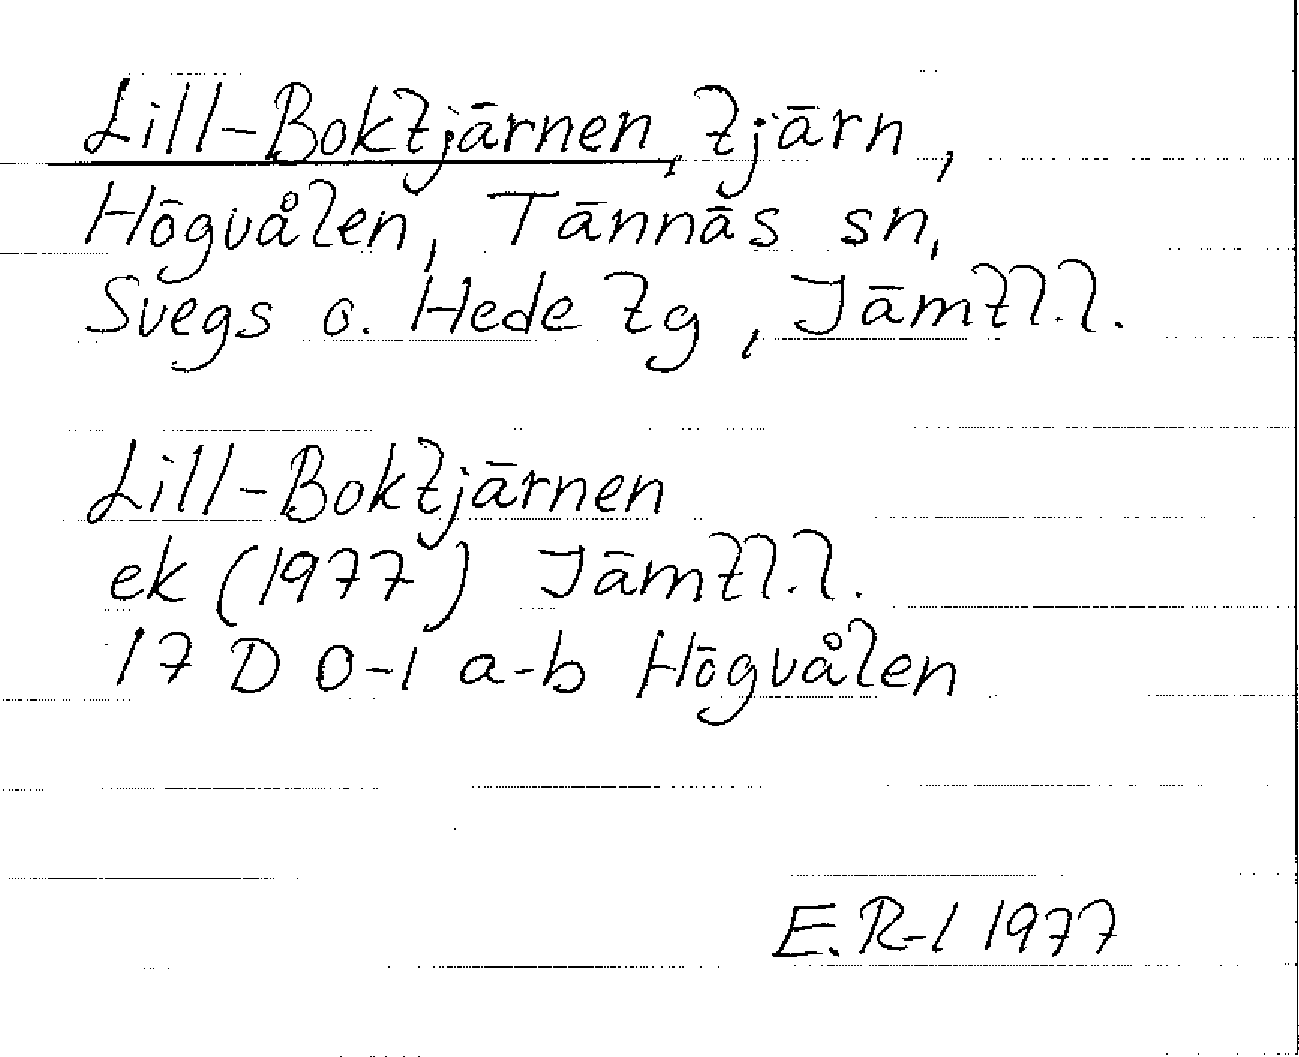 Lill-Boktjärnen, tjärn,
Högvålen, Tännäs sn,
Svegs o. Hede tg, Jämtl.l.
Lill-Boktjärnen
ek (1977) Jämtl.l.
17 D 0-1 a-b Högvålen
E.R-l 1977